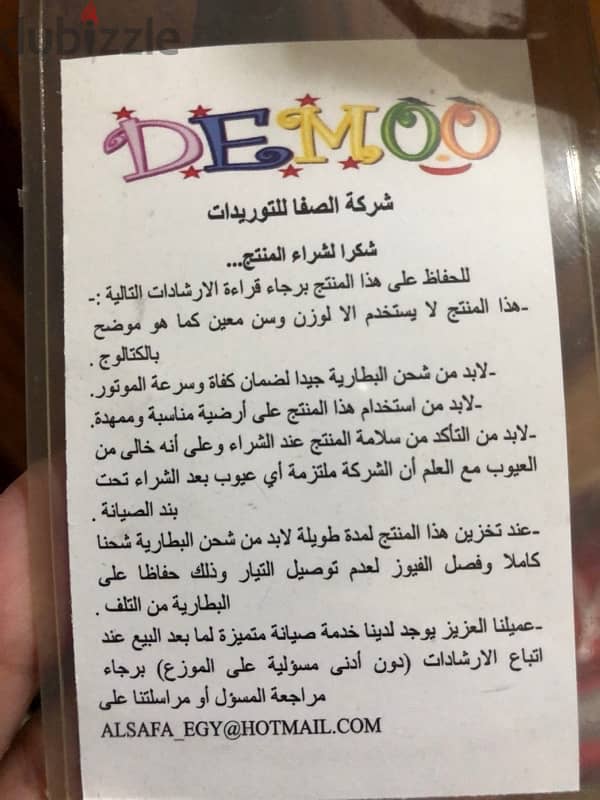 dubizzle
DEMOO
شركة الصفا للتوريدات
شكرا لشراء المنتج...
للحفاظ على هذا المنتج برجاء قراءة الارشادات التالية :-
-هذا المنتج لا يستخدم الا لوزن وسن معين كما هو موضح
بالكتالوج .
-لابد من شحن البطارية جيدا لضمان كفاة وسرعة الموتور.
-لابد من استخدام هذا المنتج على أرضية مناسبة وممهدة.
-لابد من التأكد من سلامة المنتج عند الشراء وعلى أنه خالى من
العيوب مع العلم أن الشركة ملتزمة أي عيوب بعد الشراء تحت
بند الصيانة .
-عند تخزين هذا المنتج لمدة طويلة لابد من شحن البطارية شحنا
كاملا وفصل الفيوز لعدم توصيل التيار وذلك حفاظا على
البطارية من التلف .
-عميلنا العزيز يوجد لدينا خدمة صيانة متميزة لما بعد البيع عند
اتباع الارشادات (دون أدنى مسؤلية على الموزع) برجاء
مراجعة المسؤل أو مراسلتنا على
ALSAFA_EGY@HOTMAIL.COM